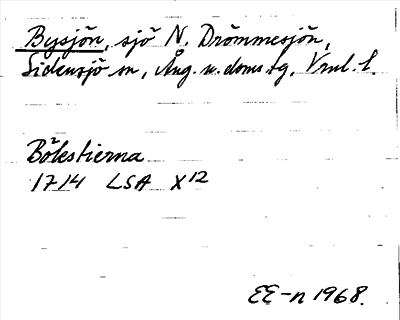 Bysjön, sjö N. Drömmesjön,
Sidensjö sn, Ång. n. doms. sg, Vml. l.
Bölestierna
1714 LSA X12
EE-n 1968.